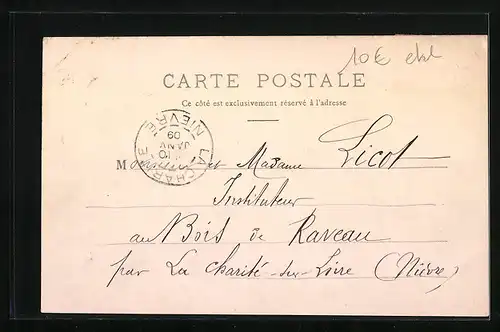 10€
CARTE POSTALE
Ce côté est exclusivement réservé à l'adresse
LA CHARITE
NIEVRE
JANV
09
Monsieur et Madame Licot
Instituteur
au Bois de Raveau
par La Charité-sur-Loire (Nièvre)